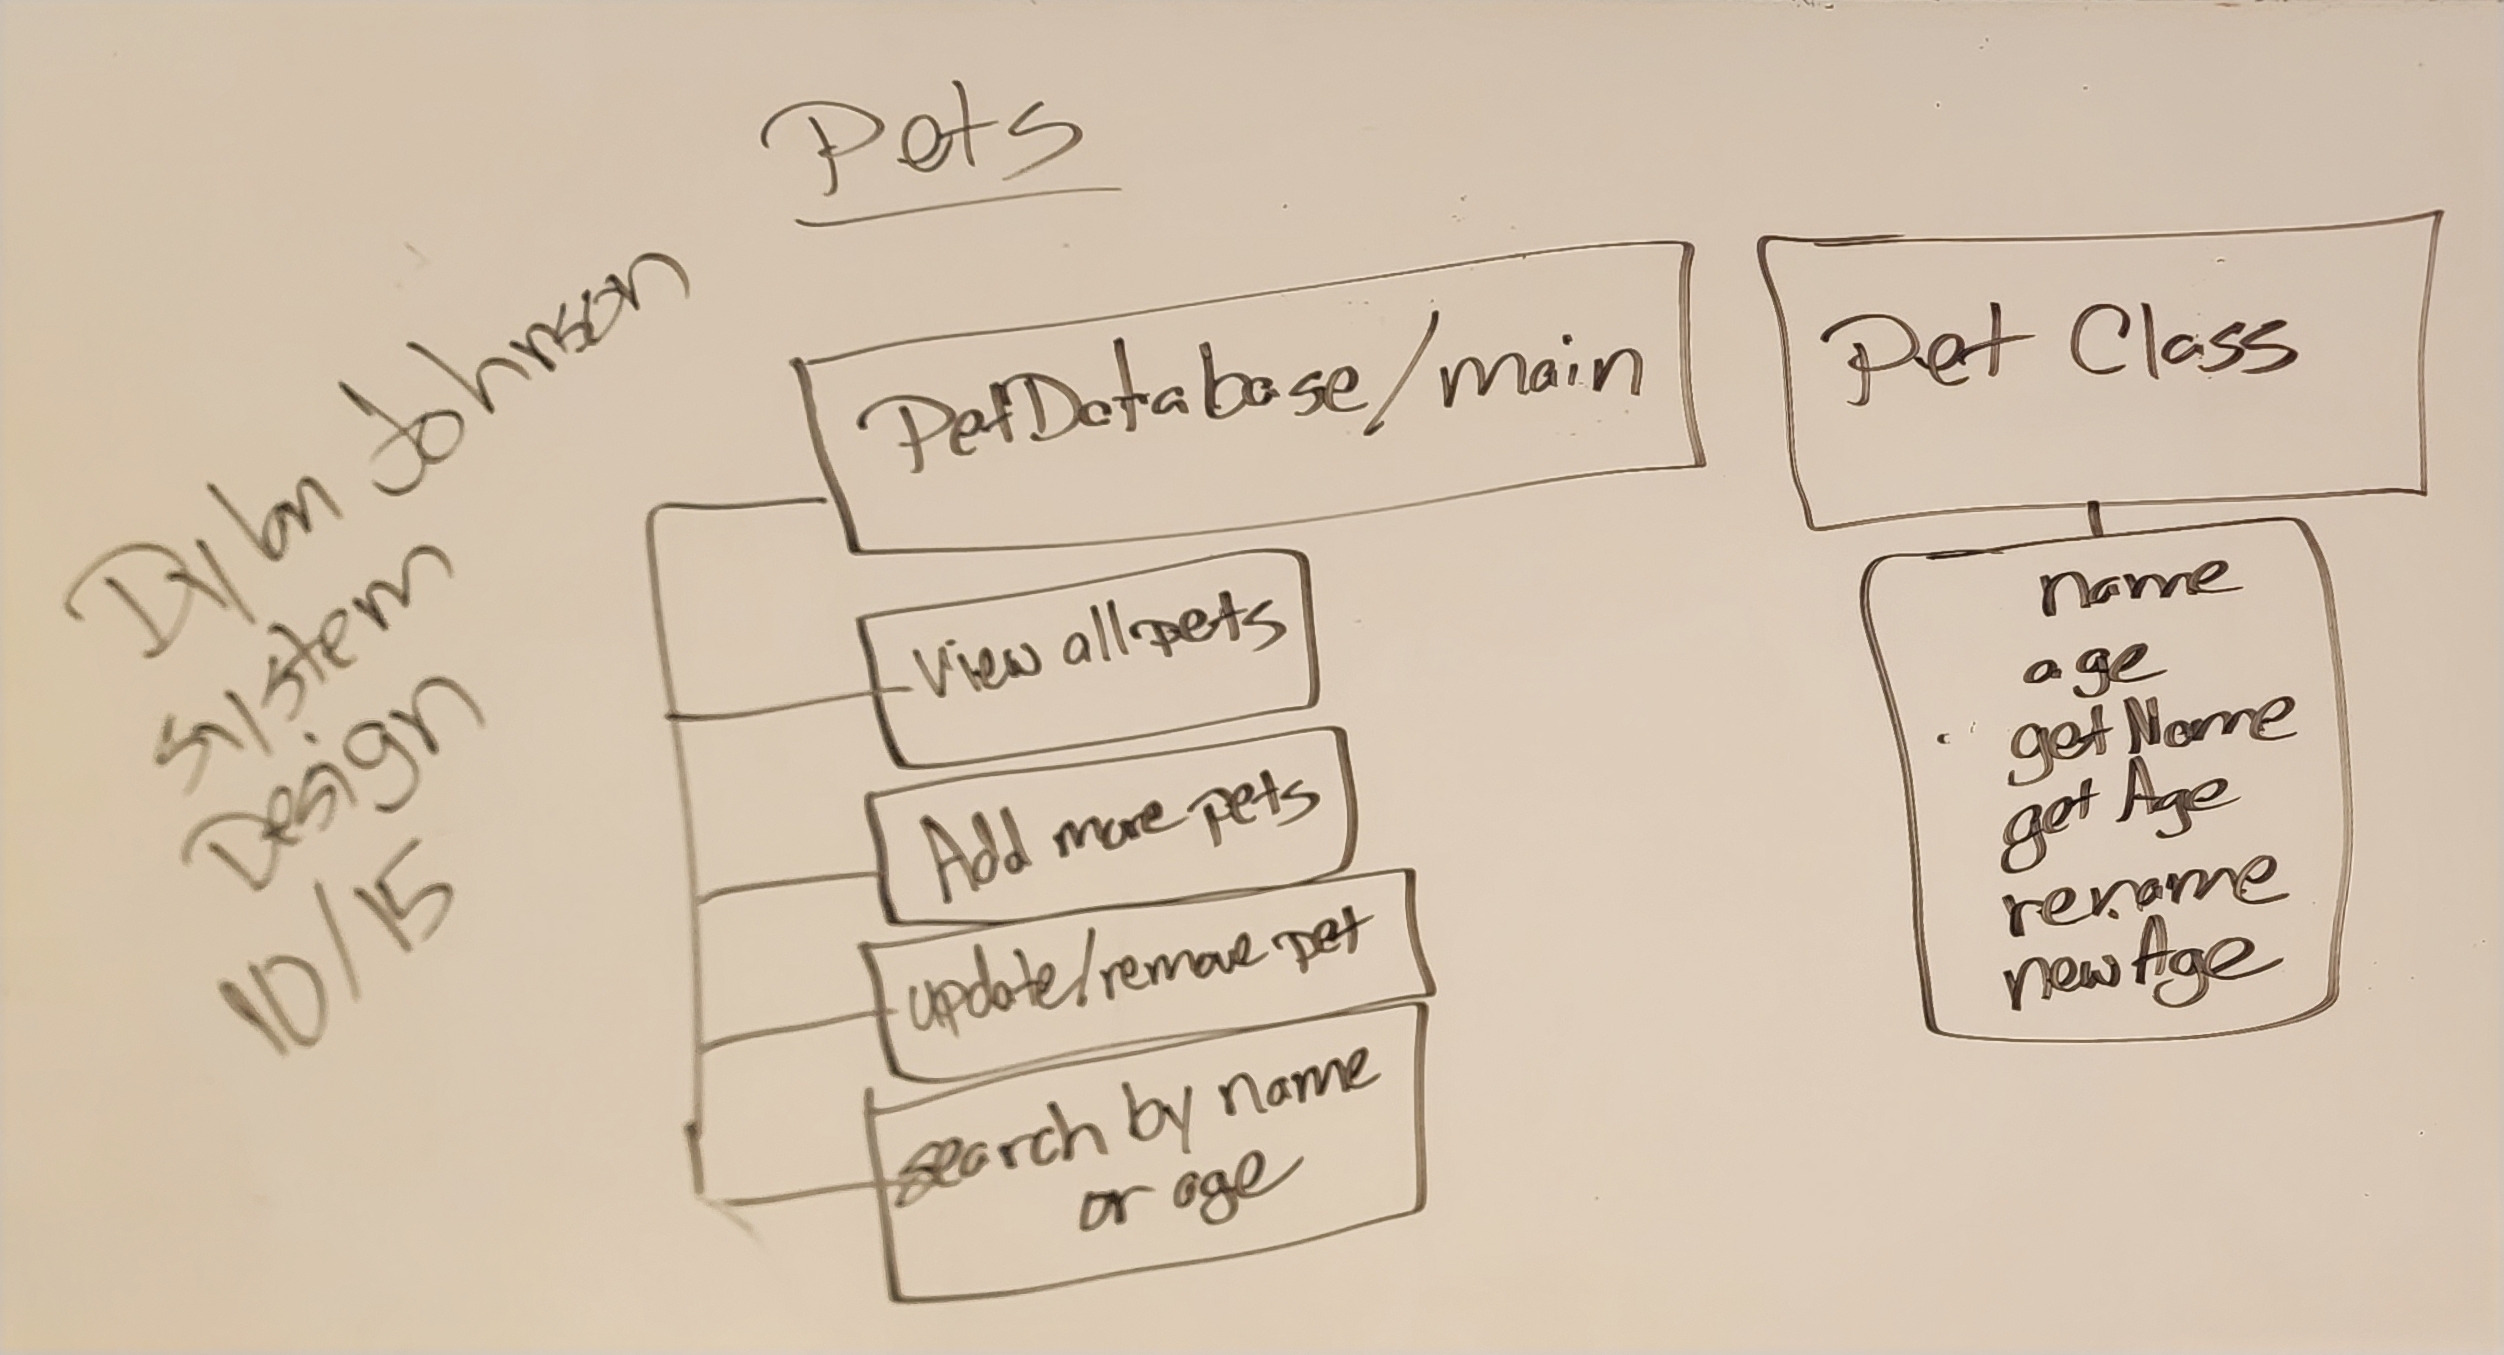 Pets
Dylan Johnson
System
Design
10/15
PetDatabase/main
view all pets
Add more pets
update/remove pet
search by name
or age
Pet Class
name
age
getName
getAge
rename
newAge